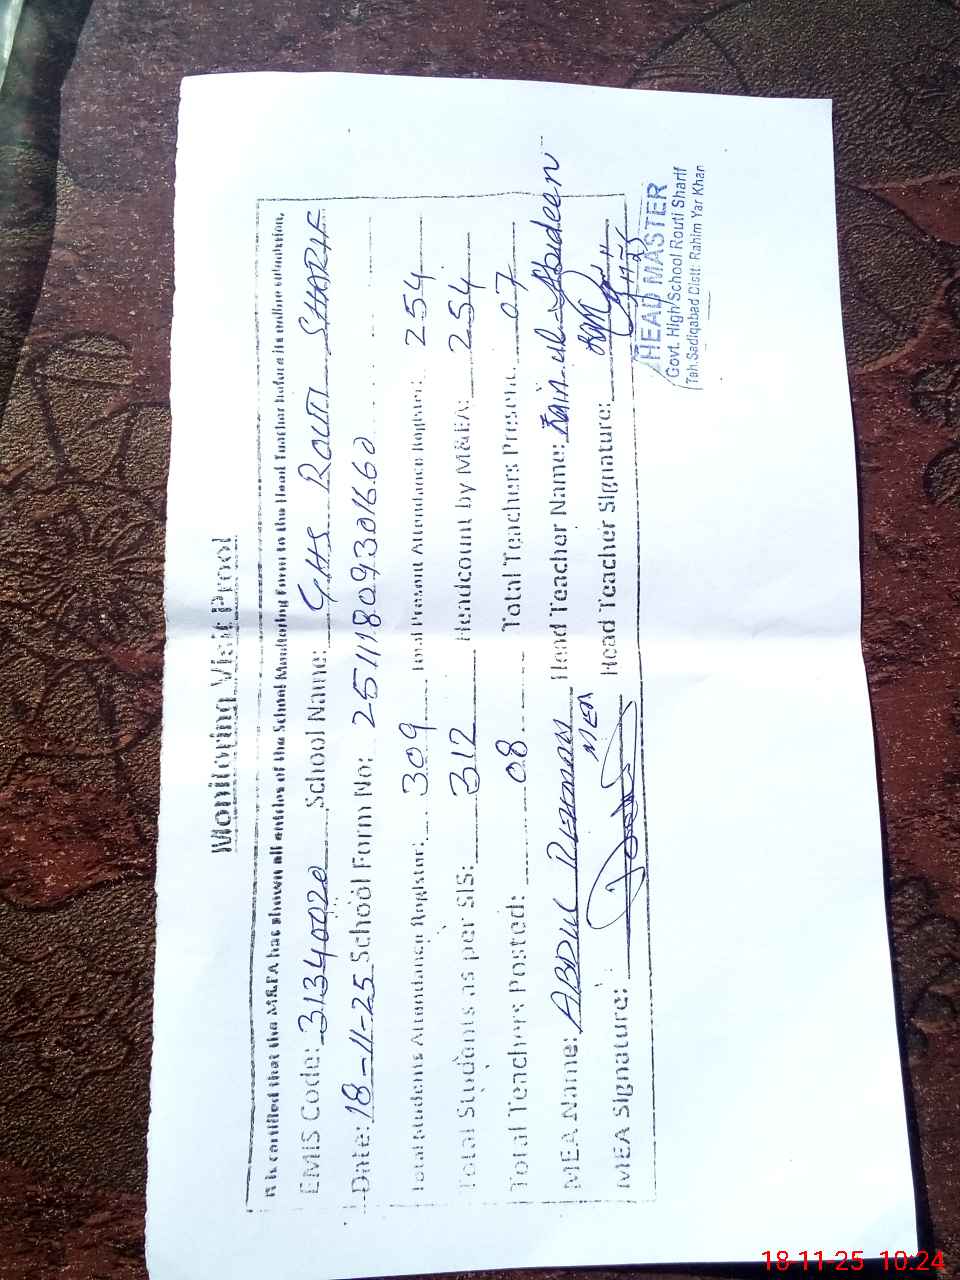 Monitoring Visit Proof
It is certified that the M&EA has shown all entries of the School Monitoring Form to the Head Teacher before its online submission.
EMIS Code: 31340020 School Name: GHS ROUTI SHARIF
Date: 18-11-25 School Form No: 2511180930166 0
Total Students Attendance Register: 309 Total Present Attendance Register: 254
Total Students as per SIS: 312 Headcount by M&EA: 254
Total Teachers Posted: 08 Total Teachers Present 07
MEA Name: ABDUL REHMAN Head Teacher Name: Zain ul Abideen
MEA
MEA Signature: Head Teacher Signature:
HEAD MASTER
Govt. High School Routi Sharif
Teh. Sadiqabad Distt. Rahim Yar Khan
18-11-25 10:24